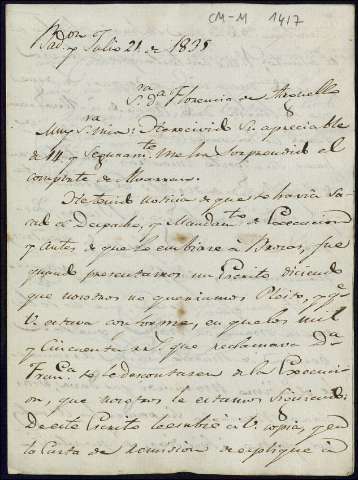 CM-M 1417
Bad.z y Julio 21 de 1835
S.ra D.a Florencia de
Muy S.ra mia: He recivido Su apreciable
de 14 y Seguram.te me ha Sorprendido el
comp.te de
He tenido noticia de que se havia
cado el Despacho, y Mandam.to de Execucion
y antes de que lo embiare a Brozas, fue
quando presentamos un Escrito diciendo
que nosotros no queriamos Pleito, y q.e
V. estava conforme, en que los mil
y Cincuenta r.s que reclamava D.a
Fran.ca se le descontasen de la Execuci
on, que nosotros le estamos Siguiendo
De este Escrito le embie a V. copia, y en
la Carta de remision la explique a